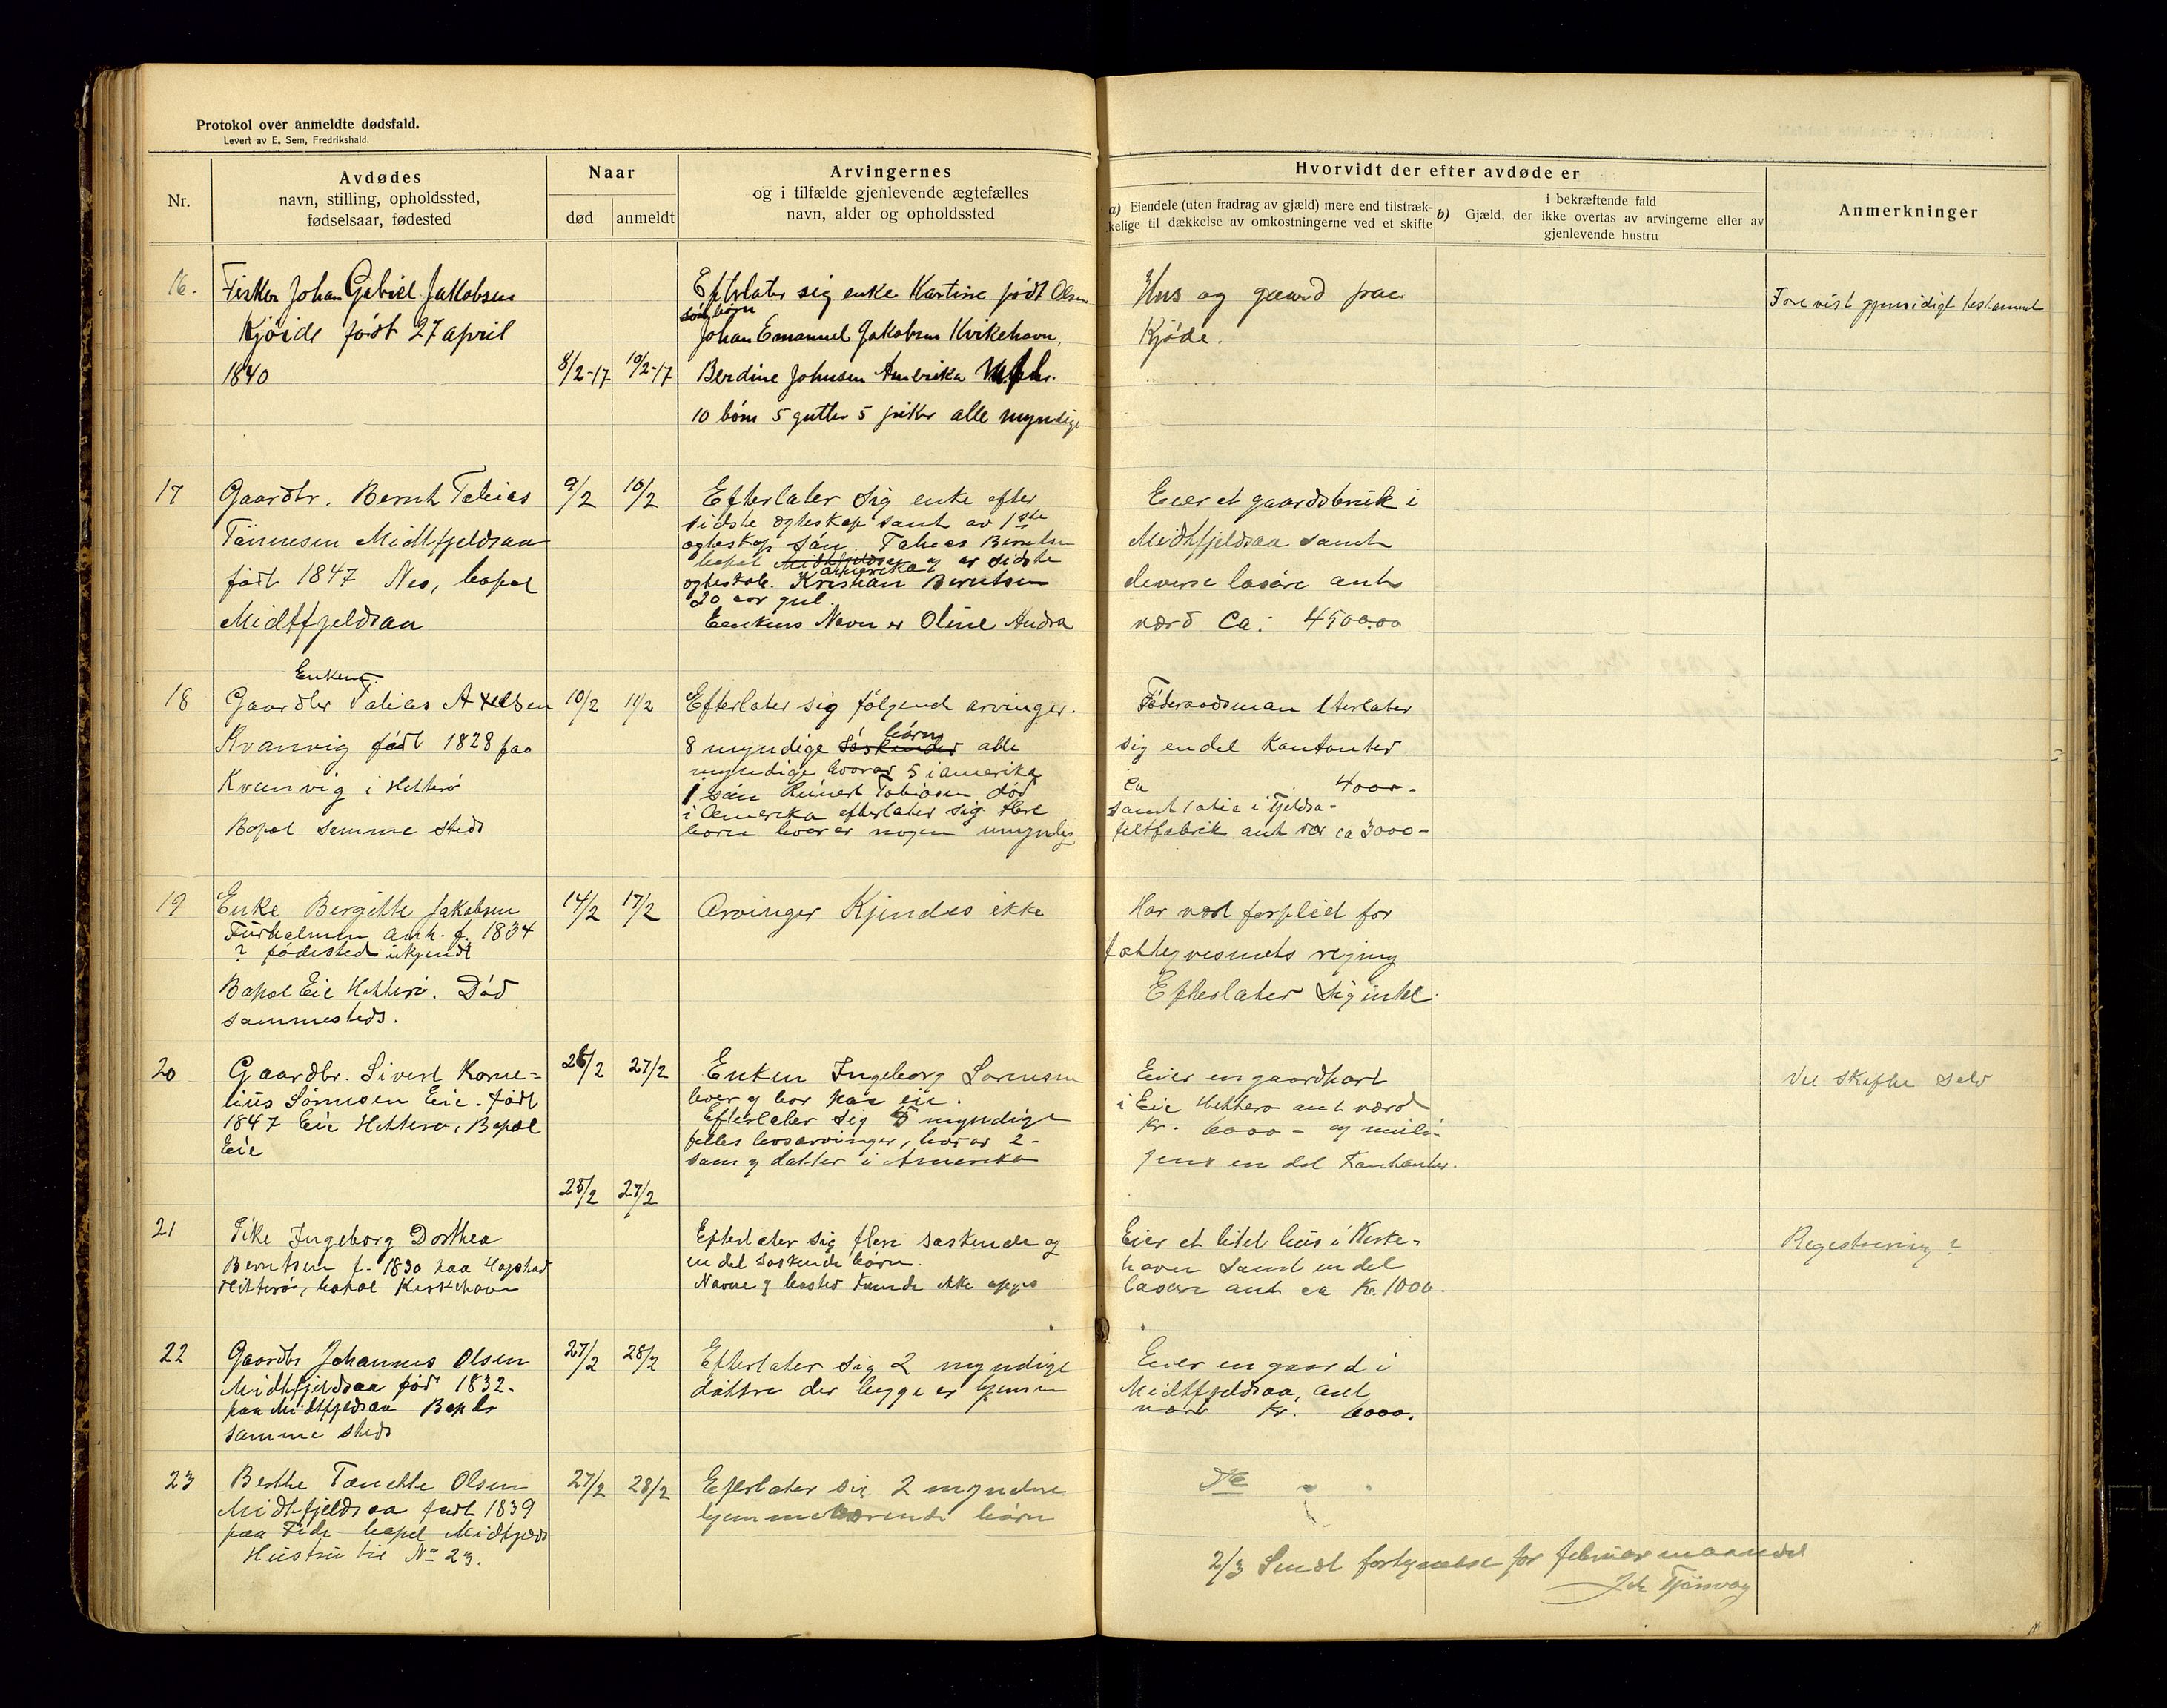 Protokol over anmeldte dødsfald.
Levert av E. Sem, Fredrikshald.
Nr.
Avdødes
navn, stilling, opholdssted,
fødselsaar, fødested
Naar
død
anmeldt
Arvingernes
og i tilfælde gjenlevende ægtefælles
navn, alder og opholdssted
Hvorvidt der efter avdøde er
a) Eiendele (uten fradrag av gjæld) mere end tilstræk-
kelige til dækkelse av omkostningerne ved et skifte
b) i bekræftende fald
Gjæld, der ikke overtas av arvingerne eller av
gjenlevende hustru
Anmerkninger
16.
Fisker Johan Gabriel Jakobsen
Kjöide født 27 april
1840
8/2-17
10/2-17
Efterlater sig enke Kartine født Olsen
Johan Emanuel Jakobsen Kirkehavn,
Berdine Johnsen Amerika
10 börn 5 gutter 5 piker alle myndige
Hus og gaard paa
Kjöde.
Fore vist gjensidigt testament
17
Gaardbr. Bernt Tobias
Tönnesen Midtfjeldsaa
födt 1847 Nes, bopæl
Midtfjeldsaa
9/2
10/2
Efterlater sig enke efter
sidste egteskap samt av 1ste
egteskap sön Tobias Berntsen
bopæl Midtfjeldsaa amerika og av sidste
egteskab. Kristian Berntsen
20 aar gml.
Enkens Navn er Oline Andrea
Eier et gaardsbruk i
Midtfjeldsaa samt
diverse losöre ant
værd Ca: 4500.00
18
Enkem.
Gaardbr Tobias Axelsen
Kvanvig födt 1828 paa
Kvanvig i Hitterö
Bopæl samme steds
10/2
11/2
Efterlater sig fölgend arvinger.
8 myndige söskender börn alle
myndige hvorav 5 i amerika
1 sön Reinert Tobiasen död
i Amerika efterlater sig flere
börn hvorav nogen umyndig
Föderaadsman eterlater
sig en del Kontanter
ca 4000-
samt i Fjeldsa-
feltfabrik ant vær ca 3000-
19
Enke Bergitte Jakobsen
Furholmen anh. f. 1834
? födested ukjendt
Bopæl Eie Hitterö. Död
sammesteds.
14/2
17/2
Arvinger Kjendes ikke
Har vært forpleid for
fattigvesenets regning
Efterlater sig intet.
20
Gaardbr. Sivert Korne=
lius Sörensen Eie. født
1847 Eie Hitterö, Bopæl
Eie
26/2
27/2
Enken Ingeborg Sörensen
lever og bor paa eie.
Efterlater sig 5 myndige
felles livsarvinger, hvorav 2-
sön og datter i Amerika
Eier en gaardpart
i Eie Hitterö ant værd
Kr. 6000- og muli-
gens en del Kontanter.
Vil skifte selv
21
Pike Ingeborg Dorthea
Berntsen f. 1830 paa
Hitterö, bopæl Kirkehavn
25/2
27/2
Efterlater sig flere söskende og
en del söskende börn.
Navne og bosted kunde ikke opgis
Eier et litet hus i Kirke=
havn samt en del
lösöre ant ca Kr. 1000.
Registrering?
22
Gaardbr Johannes Olsen
Midtfjeldsaa föd 1832.
paa Midtfjeldsaa Bopæl
samme steds
27/2
28/2
Efterlater sig 2 myndige
döttre der begge er hjemme
Eier en gaard i
Midtfjeldsaa, ant
værd Kr. 6000.
23
Berthe Tonette Olsen
Midtfjeldsaa födt 1839
paa Fide bopæl Midtfjelds
Hustru til No 23.
27/2
28/2
Efterlater sig 2 myndige
hjemmeværende börn
Do
2/3 Sendt fortegnelse for februar maaned